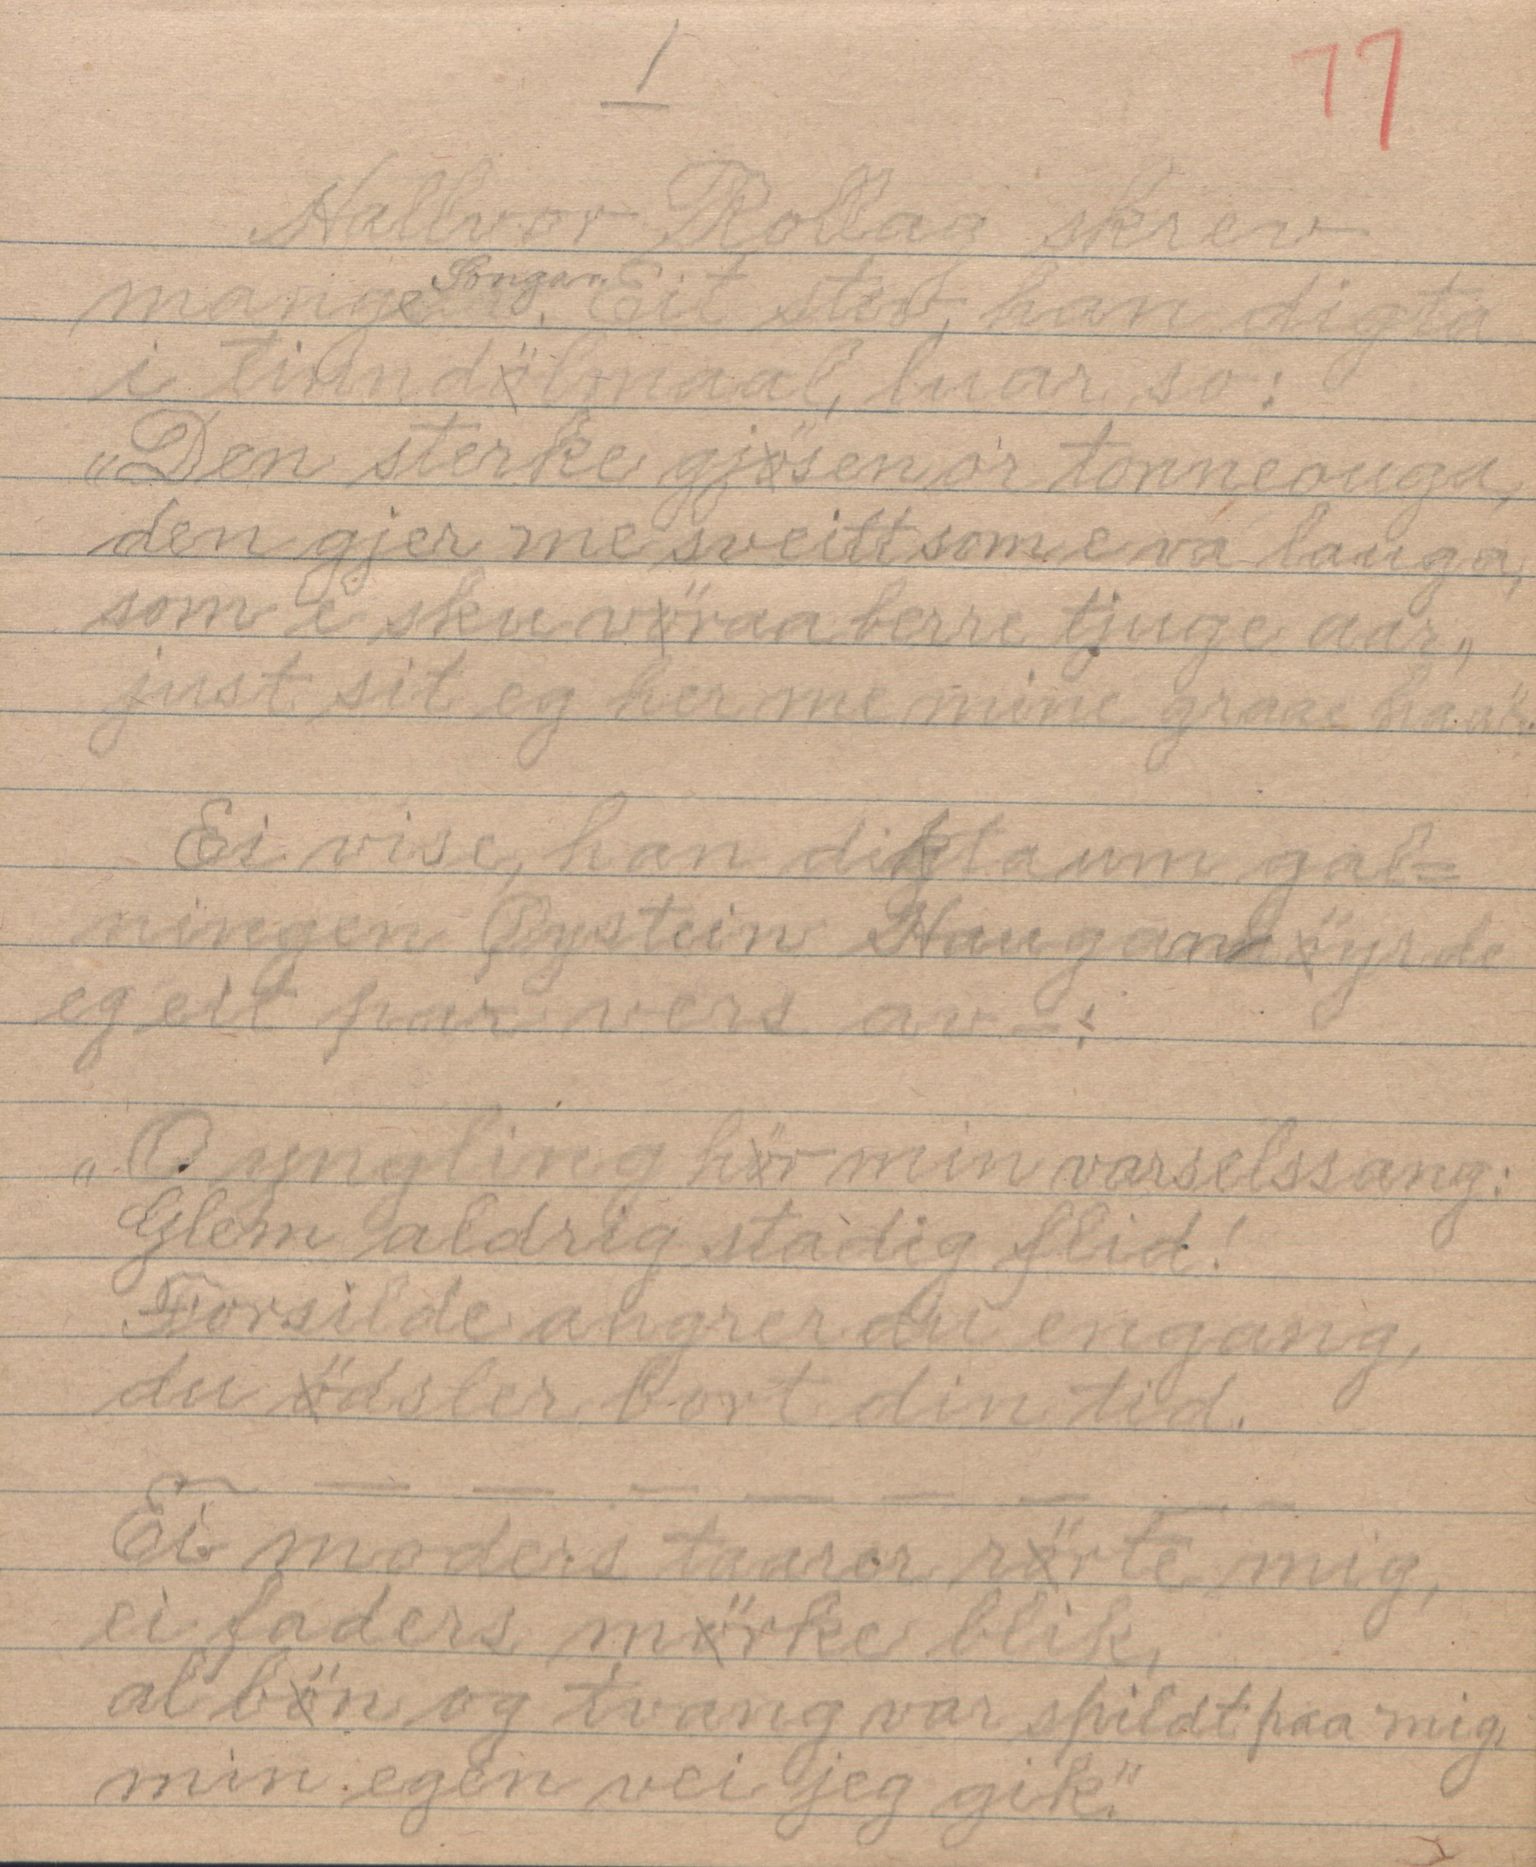 1
77
Hallvor Rollag skrev
mange Songar. Eit stev, han digta
i tinndölmaal, luar so:
„Den sterke gjösen or tonneouga,
den gjer me sveitt som e va lauga,
som e sku vöraa berre tjuge aar,
just sit eg her me mine graae haar.
Ei vise, han digta um gal=
ningen Øystein Haugan höyrde
eg eit par vers av -:
„O yngling hör min varselssang:
Glem aldrig stadig flid!
Forsilde angrer du engang,
du ödsler bort din tid.
— — — — — — — —
Ei moders taarer rörte mig,
ei faders mörke blik,
al bön og tvang var spildt paa mig
min egen vei jeg gik."